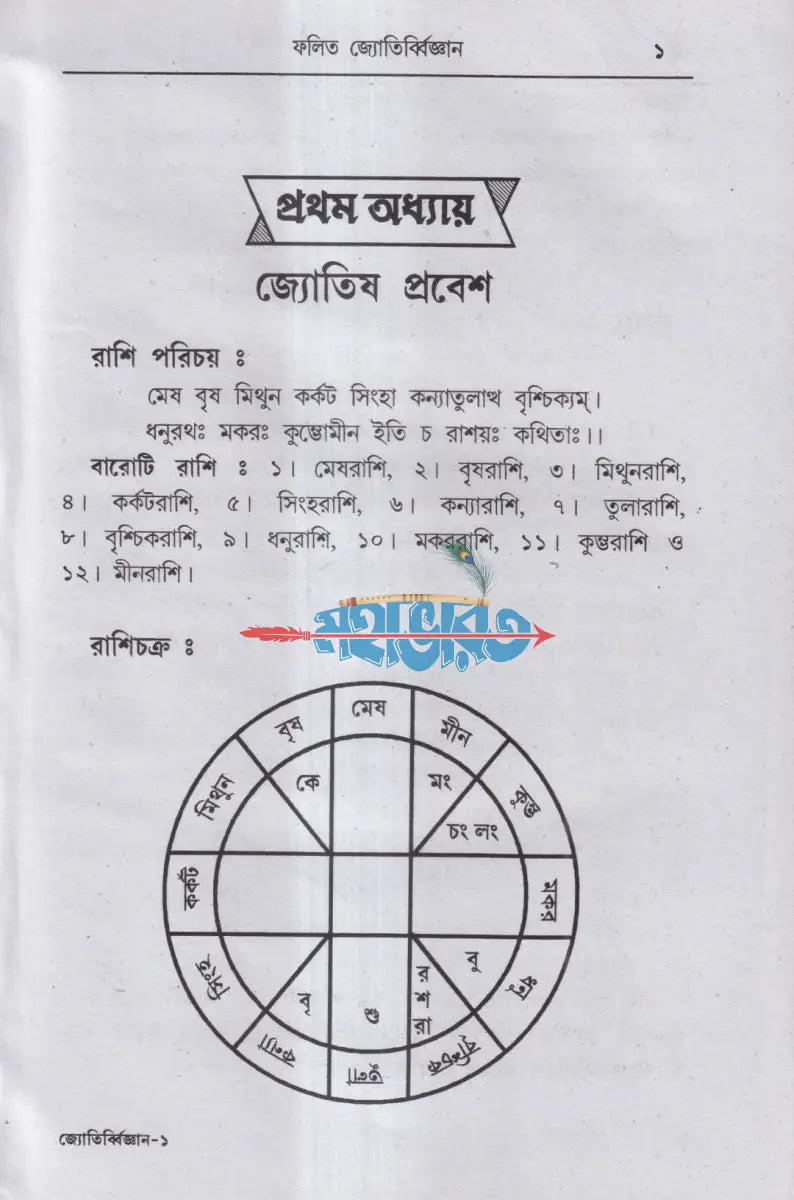 ফলিত জ্যোতির্ব্বিজ্ঞান ১
প্রথম অধ্যায়
জ্যোতিষ প্রবেশ
রাশি পরিচয় ঃ
মেষ বৃষ মিথুন কর্কট সিংহা কন্যাতুলাথ বৃশ্চিক্যম্।
ধনুরথঃ মকরঃ কুম্ভোমীন ইতি চ রাশয়ঃ কথিতাঃ।।
বারোটি রাশি ঃ ১। মেষরাশি, ২। বৃষরাশি, ৩। মিথুনরাশি,
৪। কর্কটরাশি, ৫। সিংহরাশি, ৬। কন্যারাশি, ৭। তুলারাশি,
৮। বৃশ্চিকরাশি, ৯। ধনুরাশি, ১০। মকররাশি, ১১। কুম্ভরাশি ও
১২। মীনরাশি।
মহাভারত
রাশিচক্র ঃ
মেষ
বৃষ
মীন
মিথুন
কে
মং
কুম্ভ
চং লং
কর্কট
মকর
সিংহ
বৃ
শু
র
শ
রা
বু
ধনু
কন্যা
তুলা
বৃশ্চিক
জ্যোতির্ব্বিজ্ঞান-১